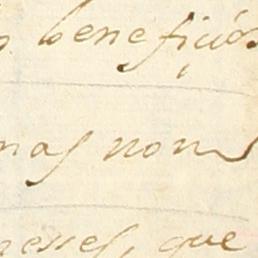 beneficios
mas nom
esses, que